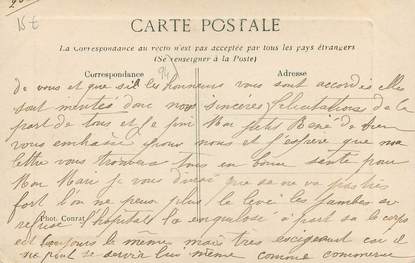 15 €
CARTE POSTALE
La Correspondance au recto n'est pas acceptée par tous les pays étrangers
(Se renseigner à la Poste)
Correspondance
Adresse
de vous et que si les honneurs vous sont accordés elles
sont mérités donc nos sinceres félicitations de la
part de tous et je fini Mon petit René de bien
vous embrassé pour nous et j'espère que ma
lettre vous trouvera tous en bonne santé pour
Mon Mari je vous dirai que sa ne va pas très
fort l'on ne peux plus le levé les jambes
Phot. Conrat
l'hopital la enquilosé a part sa le corps
est toujours le même mais très exigeant car il
ne peut se servir lui même comme